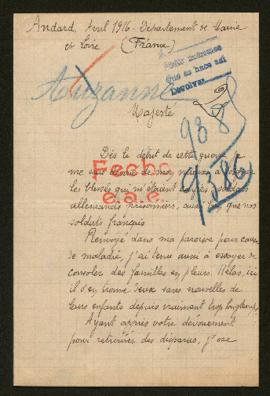 Andard, Avril 1916 - Département de Maine
et Loire (France)
Pedir
Que se hace así
Devolver
Auzanne
988
Majesté
Dès le début de cette guerre, je
me suis
les blessés qui m'étaient soldats
allemands prisonniers, aussi que nos
soldats français
Fecho
e.a.c.
Renvoyé dans ma paroisse pour cause
de maladie, j'ai tenu aussi à essayer de
consoler des familles en pleurs. Hélas, ici
il s'en trouve deux sans nouvelles de
leurs enfants depuis vraiment trop longtemps.
Ayant appris votre dévouement
pour retrouver des disparus, j'ose